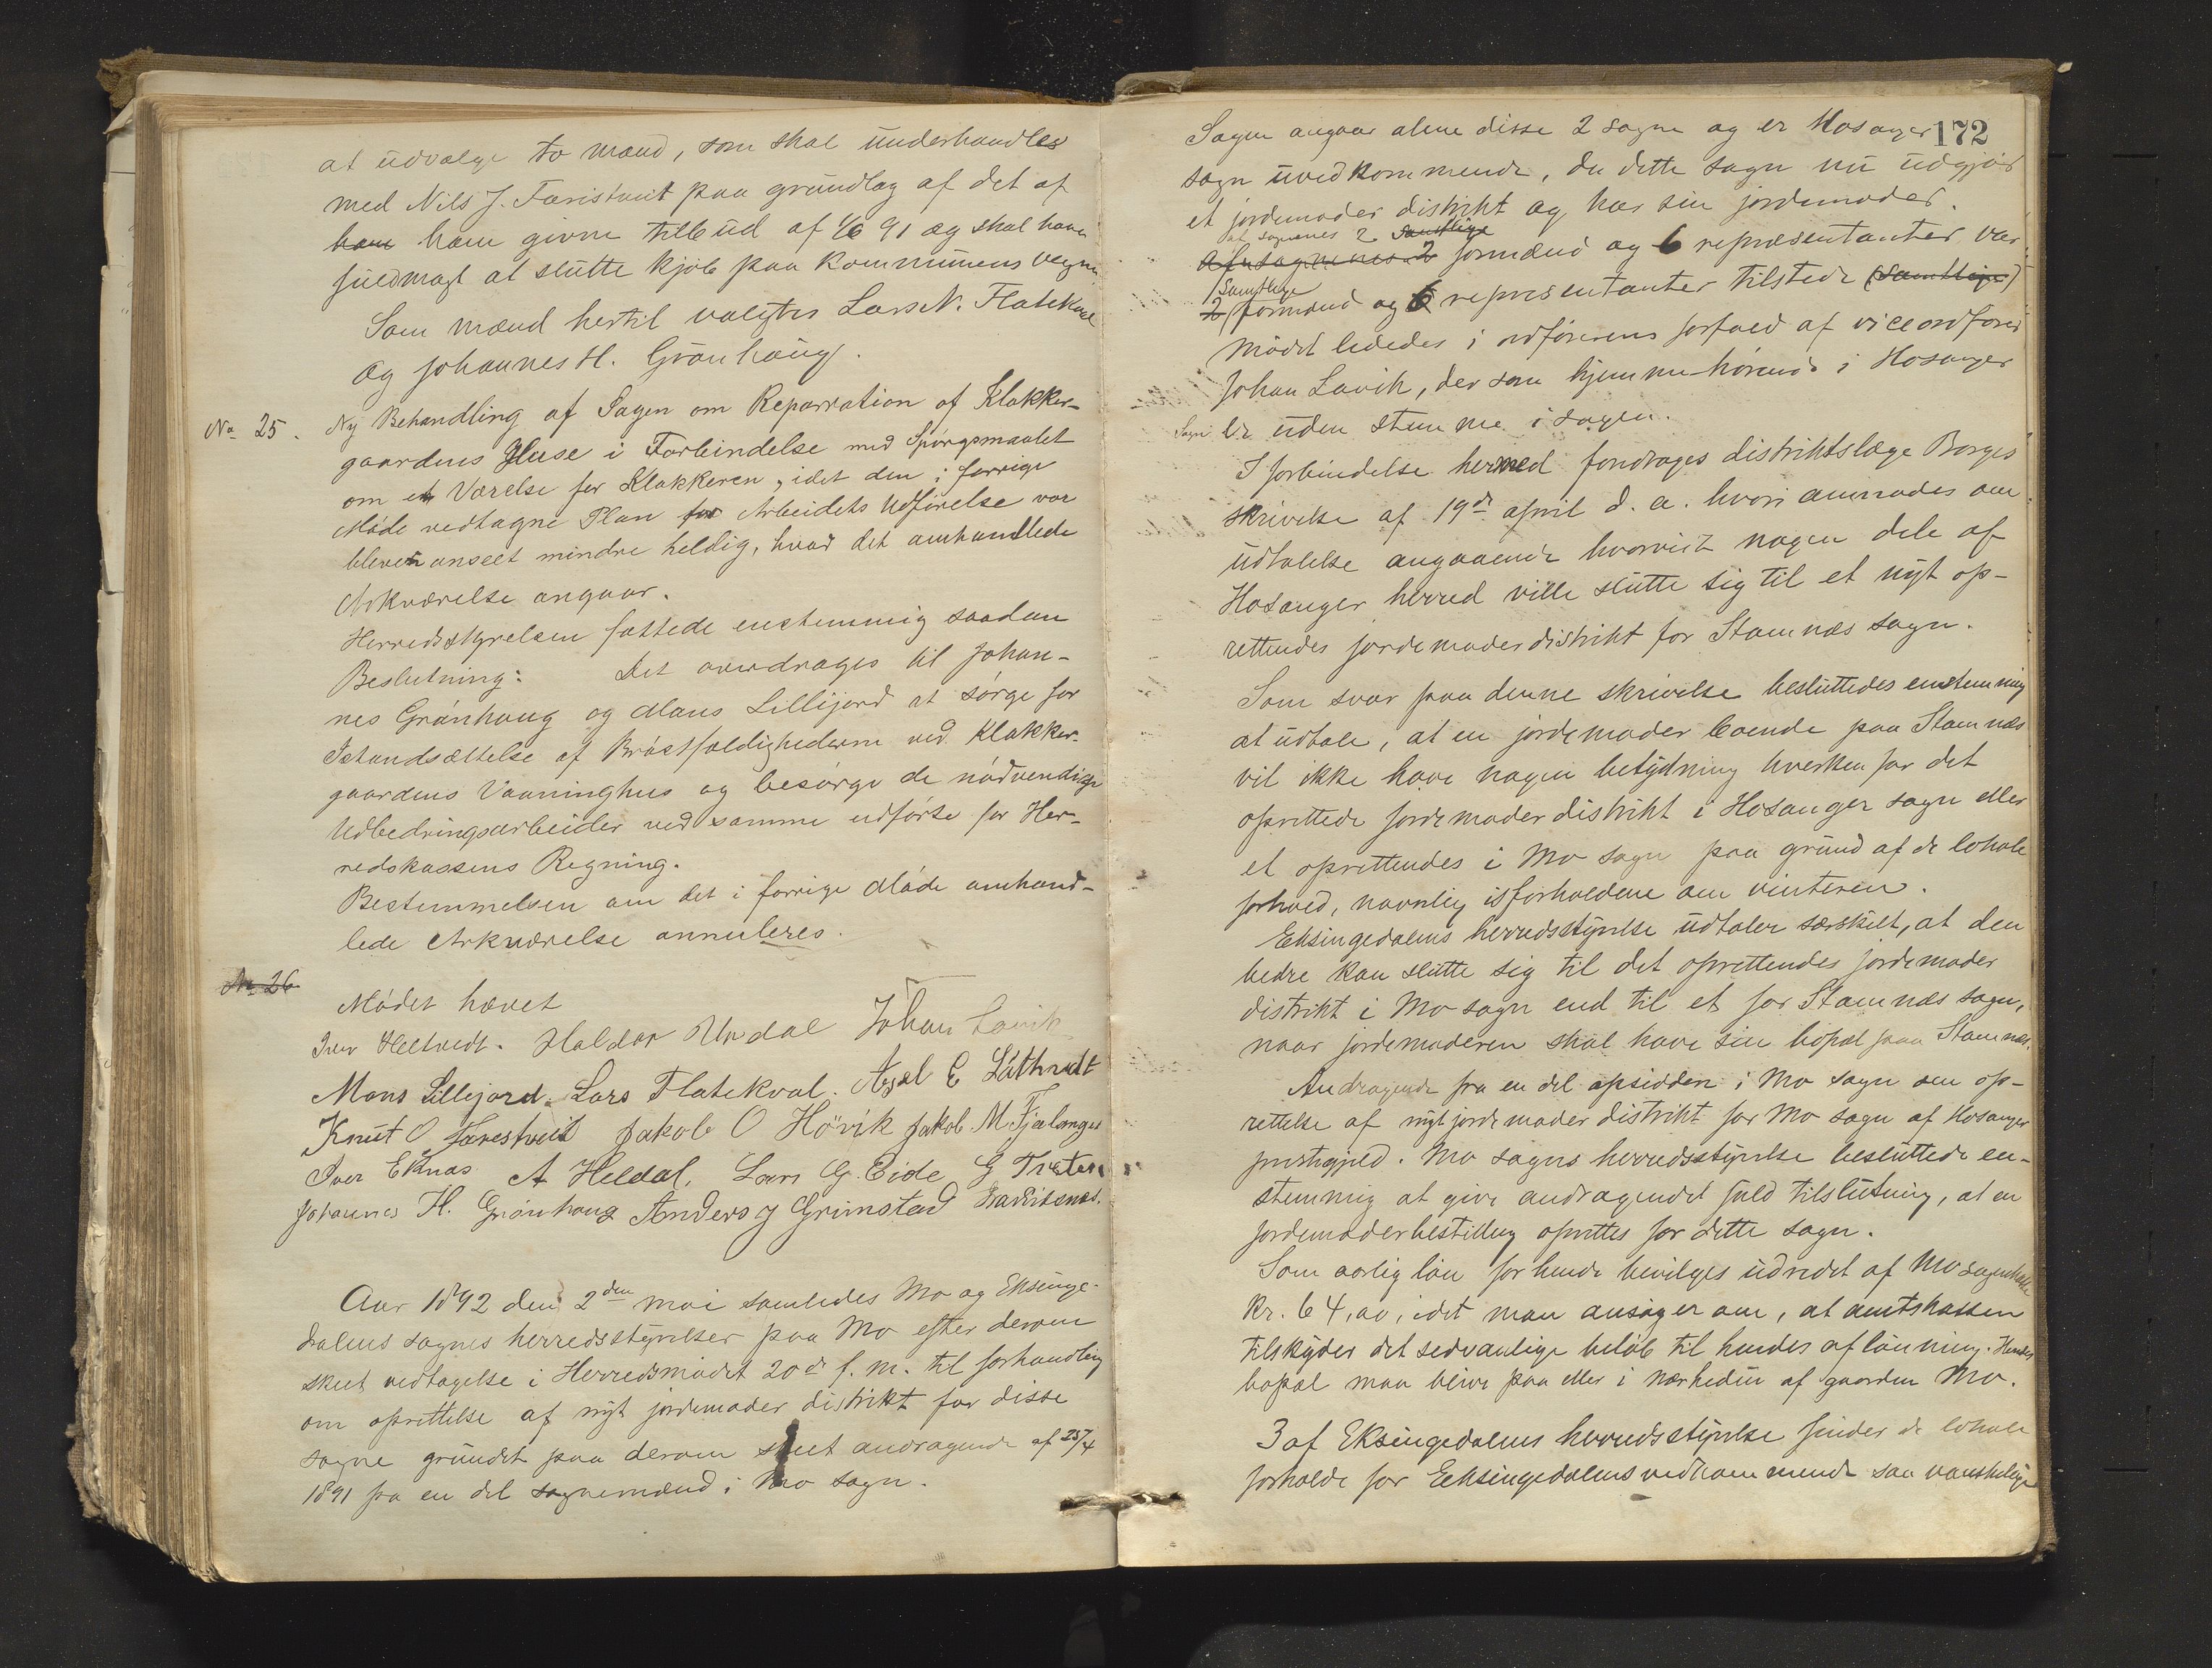 at udvælge to mænd, som skal underhandles
med Nils J. Faristveit paa grundlag af det af
ham ham givne tilbud af 1/6 91 og skal have
fuldmagt at slutte kjøb paa kommunens vegne
Som mænd hertil valgtes Lars N. Flatekval
og Johannes H. Grønhaug.
No 25. Ny Behandling af Sagen om Reparration af Klokker-
gaardens Huse i Forbindelse med Spørgsmaalet
om et Værelse for Klokkeren, idet den i forrige
Møde vedtagne Plan for Arbeidets Udførelse var
bleven anseet mindre heldig, hvad det omhandlede
Arkværelse angaar.
Herredsstyrelsen fattede enstemmig saadan
Beslutning: Det overdrages til Johan-
nes Grønhaug og Mans Lillijord at sørge for
Istandsættelse af Brøstfældighederne ved Klokker-
gaardens Vaaninghus og besørge de nødvendige
Udbedringsarbeider ved samme udførte for Her-
redskassens Regning.
Bestemmelsen om det i forrige Møde omhand-
lede Arkværelse annuleres.
No 26
Mødet hævet
Iver Heltvedt. Haldor Urdal Johan Lavik
Mons Lillejord. Lars Flatekval. Axel E Låthvedt
Knut O Farestveit Jakob O Hövik Jakob M. Fjælanger
Iver Eknæs A Heldal, Lars G. Eide G Træten
Johannes H. Grønhaug Anders J Grimstad
Aar 1892 den 2den mai samledes Mo og Eksinge-
dalens sognes herredsstyrelser paa Mo efter derom
skeet vedtagelse i Herredsmødet 20de f. m. til forhandling
om oprettelse af nyt jordemoder distrikt for disse
sogne grundet paa derom skeet andragende af 25/4
1891 fra en del sognemænd i Mo sogn.
172
Sagen angaar alene disse 2 sogne og er Hosanger
sogn uvedkommende, da dette sogn nu udgjør
et jordemoder distrikt og har sin jordemoder.
af sognenes 2 samtlige
af sognenes 2 formænd og 6 repræsentanter var
samtlige
2 formænd og 6 repræsentanter tilstede (samtlige)
Mødet lededes i ordførerens forfald af viceordfører
Johan Lavik, der som hjemmehørende i Hosanger
Sogn er uden stemme i sagen.
I forbindelse hermed foredrages distriktslæge Borges
skrivelse af 19de april d. a. hvori anmodes om
udtalelse angaaende hvorvidt nogen dele af
Hosanger herred ville slutte sig til et nyt op-
rettendes jordemoderdistrikt for Stamnæs sogn.
Som svar paa denne skrivelse besluttedes enstemmig
at udtale, at en jordemoder boende paa Stamnæs
vil ikke have nogen betydning hverken for det
oprettede jordemoder distrikt i Hosanger sogn eller
et oprettendes i Mo sogn paa grund af de lokale
forhold, navnlig isforholdene om vinteren.
Eksingedalens herredsstyrelse udtaler særskilt, at den
bedre kan slutte sig til det oprettendes jordemoder
distrikt i Mo sogn end til et for Stamnæs sogn,
naar jordemoderen skal have sin bopæl paa Stamnæs.
Andragende fra en del opsiddere i Mo sogn om op-
rettelse af nyt jordemoder distrikt for Mo sogn af Hosanger
prestegjeld. Mo sogns herredsstyrelse besluttede en-
stemmig at give andragendet fuld tilslutning, at en
jordemoderbestilling oprettes for dette sogn.
Som aarlig løn for hende bevilges udredet af Mo
Kr. 64,00, idet man ansøger om, at amtskassen
tilskyder det sedvanlige beløb til hendes aflønning. Hendes
bopæl maa blive paa eller i nærheden af gaarden Mo.
3 af Eksingedalens herredsstyrelse finder de lokale
forholde for Eeksingedalens vedkommende saa vanskelige